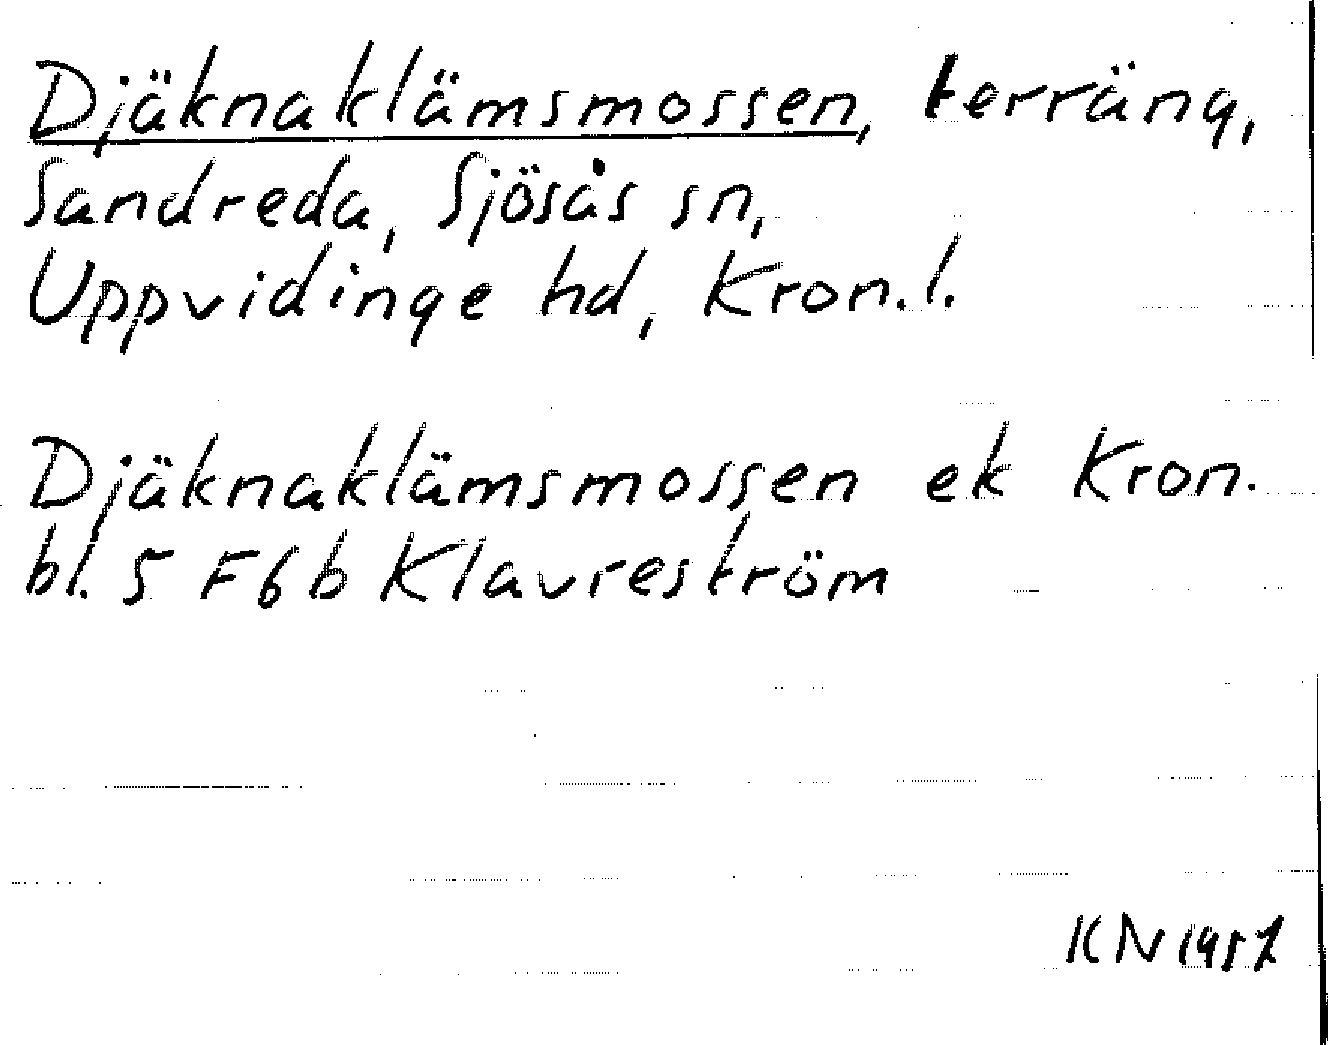 Djäknaklämsmossen, terräng,
Sandreda, Sjösås sn,
Uppvidinge hd, Kron.l.
Djäknaklämsmossen ek Kron.
bl. 5 F6b Klavreström
KN 1957